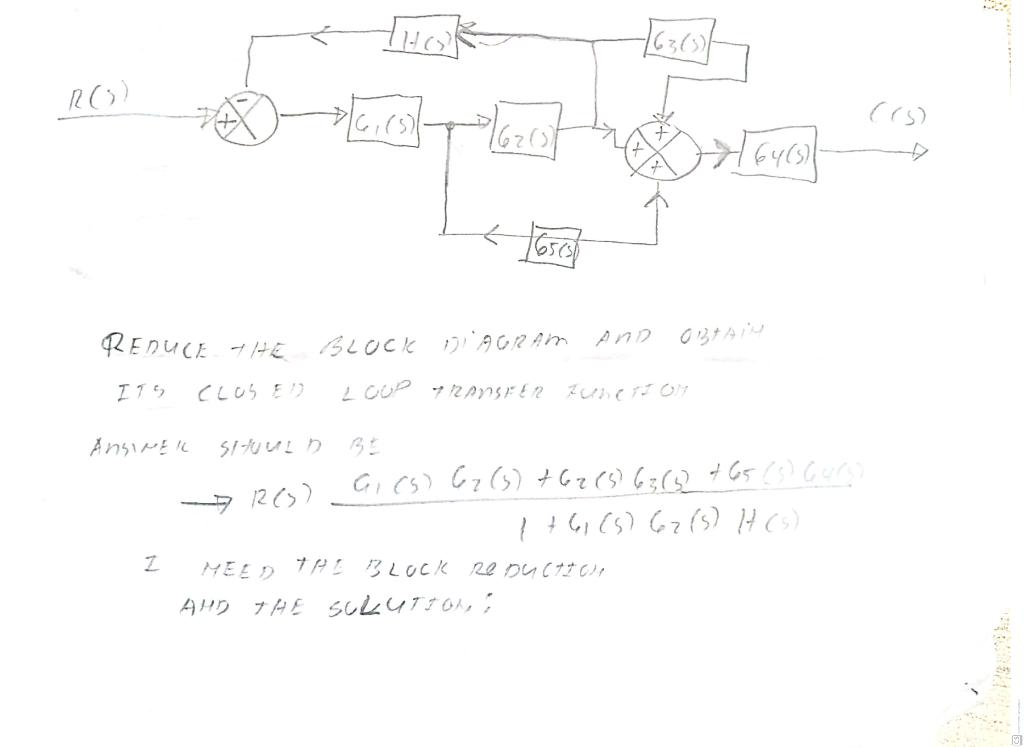 H(s)
G3(s)
R(s)
-
+
G1(s)
G2(s)
+
+
+
G4(s)
C(s)
G5(s)
REDUCE THE BLOCK DIAGRAM AND OBTAIN
ITS CLOSED LOOP TRANSFER FUNCTION
ANSWER SHOULD BE
→ R(s) G1(s) G2(s) + G2(s) G3(s) + G5(s) G4(s)
1 + G1(s) G2(s) H(s)
I NEED THE BLOCK REDUCTION
AND THE SOLUTION;